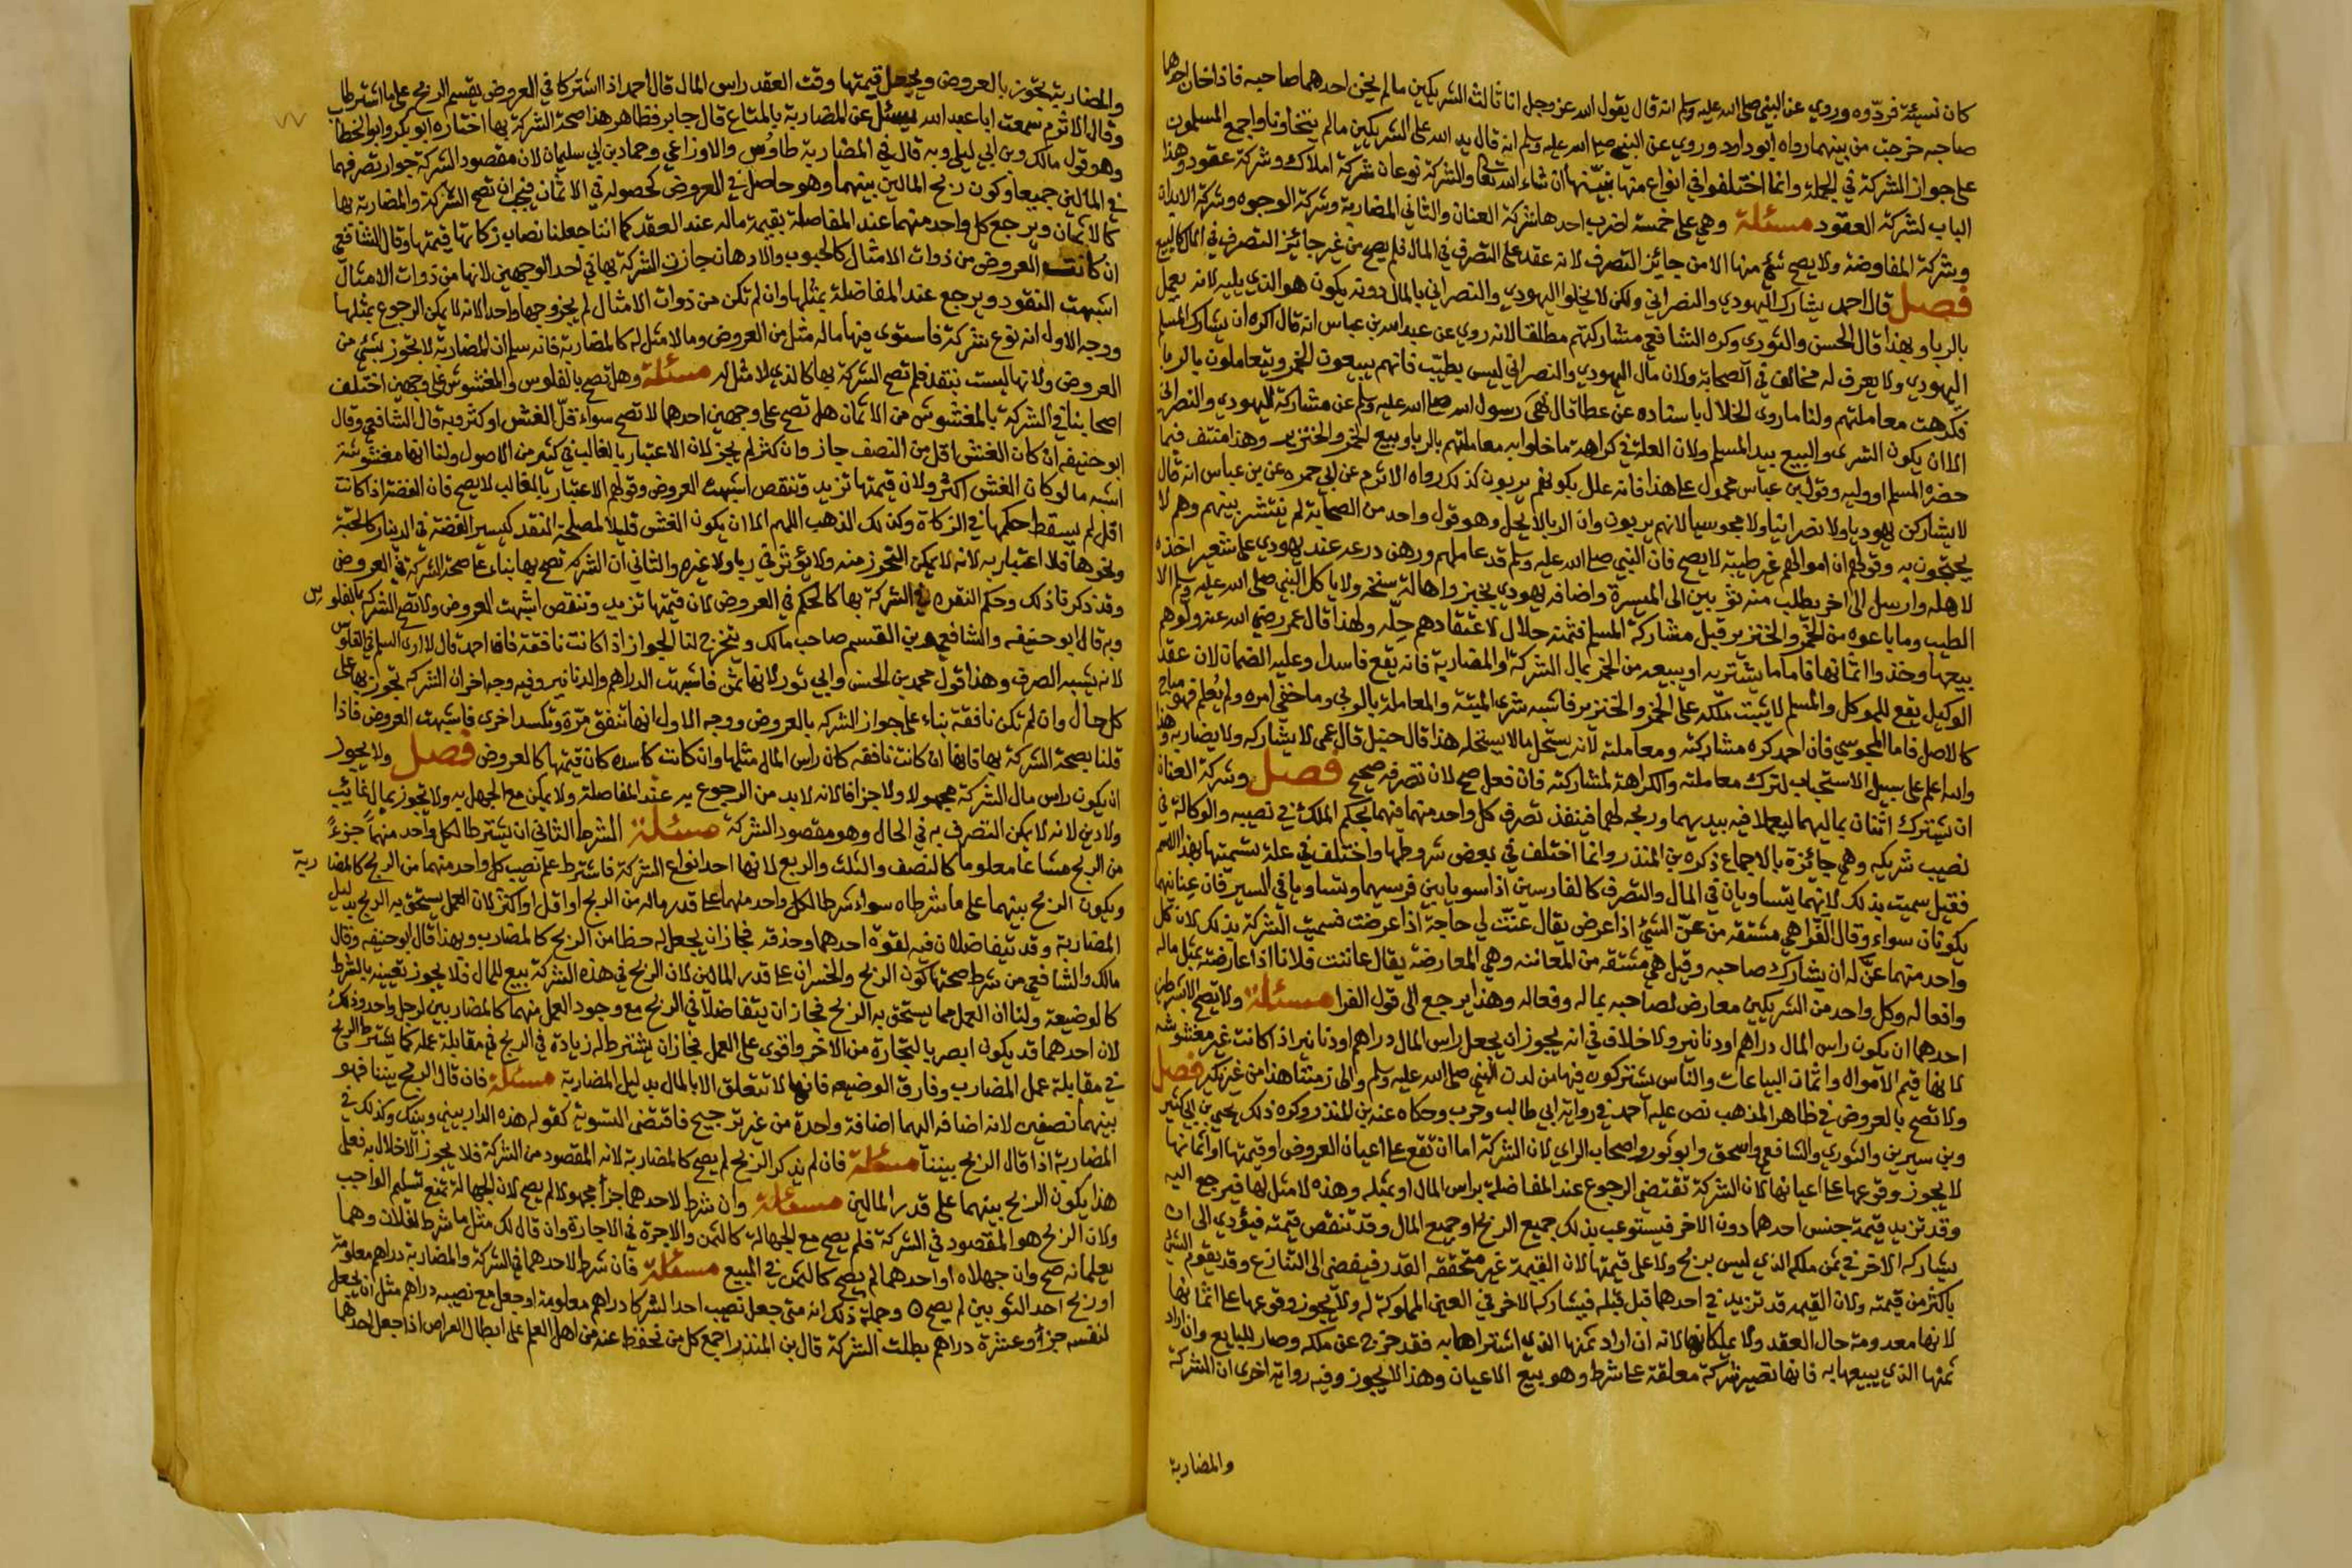 كان نسيئة فردّوه وروي عن النبي صلى الله عليه وسلم انه قال يقول الله عز وجل انا ثالث الشريكين ما لم يخن احدهما صاحبه فاذا خان احدهما
صاحبه خرجت من بينهما رواه ابو داود وروي عن النبي صلى الله عليه وسلم انه قال يد الله على الشريكين ما لم يتخاونا واجمع المسلمون
على جواز الشركة في الجملة وانما اختلفوا في انواع منها نبيّنها ان شاء الله تعالى والشركة نوعان شركة املاك وشركة عقود وهذا
الباب لشركة العقود مسئلة وهي على خمسة اضرب احدها شركة العنان والثاني المضاربة وشركة الوجوه وشركة الابدان
وشركة المفاوضة ولا يصح شئ منها الا من جائز التصرف لانه عقد على التصرف في المال فلم يصح من غير جائز التصرف في المال كالبيع
فصل قال احمد يشارك اليهودي والنصراني ولكن لا يخلوا اليهودي والنصراني بالمال دونه يكون هو الذي يليه لانه يعمل
بالربا وبهذا قال الحسن والثوري وكره الشافعي مشاركتهم مطلقا لانه روي عن عبد الله بن عباس انه قال اكره ان يشارك المسلم
اليهودي ولا يعرف له مخالف في الصحابة ولان مال اليهودي والنصراني ليس بطيّب فانهم يبيعون الخمر ويتعاملون بالربا
فكرهت معاملتهم ولنا ما روى الخلال باسناده عن عطا قال نهى رسول الله صلى الله عليه وسلم عن مشاركة اليهودي والنصراني
الا ان يكون الشرى والبيع بيد المسلم ولان العلة في كراهة ما خلوا به معاملتهم بالربا وبيع الخمر والخنزير وهذا منتف فيما
حضره المسلم او وليه وقول بن عباس محمول على هذا فانه علل بكونهم يربون كذلك رواه الاثرم عن ابي حمره عن بن عباس انه قال
لا يشاركن يهوديا ولا نصرانيا ولا مجوسيا لانهم يربون وان الربا لا يحل وهو قول واحد من الصحابة لم ينتشر بينهم وهم لا
يحتجون به وقولهم ان اموالهم غير طيبة لا يصح فان النبي صلى الله عليه وسلم قد عاملهم ورهن درعه عند يهودي على شعير اخذه
لاهله وارسل الى اخر يطلب منه ثوبين الى الميسرة واضافه يهودي بخبز واهالة سنخة ولا ياكل النبي صلى الله عليه وسلم الا
الطيب وما باعوه من الخمر والخنزير قبل مشاركة المسلم فثمنه حلال لاعتقادهم حلّه ولهذا قال عمر رضي الله عنه ولّوهم
بيعها وخذوا اثمانها فاما ما يشتريه او يبيعه من الخمر بمال الشركة او المضاربة فانه يقع فاسدا وعليه الضمان لان عقد
الوكيل يقع للموكل والمسلم لا يثبت ملكه على الخمر والخنزير فاشبه شرى الميتة والمعاملة بالربى وما خفي امره ولم يعلم فهو مباح
كالاصل فاما المجوسي فان احمد كره مشاركته ومعاملته لانه يستحل ما لا يستحله هذا قال حنبل قال عمي لا يشاركه ولا يضاربه وهذا
والله اعلم على سبيل الاستحباب لترك معاملته والكراهة لمشاركته فان فعل صح لان تصرفه صحيح فصل وشركة العنان
ان يشترك اثنان بماليهما ليعملا فيه بيديهما وربحه لهما فينفذ تصرف كل واحد منهما فيهما بحكم الملك في نصيبه والوكالة في
نصيب شريكه وهي جائزة بالاجماع ذكره بن المنذر وانما اختلف في بعض شروطها واختلف في علة تسميتها بهذا الاسم
فقيل سميت بذلك لانهما يتساويان في المال والتصرف كالفارسين اذا سويا بين فرسيهما وتساويا في السير فان عنانيهما
يكونان سواء وقال الفّرا هي مشتقه من عنّ الشئ اذا عرض يقال عنّت لي حاجة اذا عرضت فسميت الشركة بذلك لان كل
واحد منهما عنّ له ان يشارك صاحبه وقيل هي مشتقه من المعاننه وهي المعارضة يقال عاننت فلانا اذا عارضته بمثل ماله
وافعاله وكل واحد من الشريكين معارض لصاحبه بماله وفعاله وهذا يرجع الى قول الفرا مسئلة ولا تصح الا بشرطين
احدهما ان يكون راس المال دراهم او دنانير ولا خلاف في انه يجوز ان يجعل راس المال دراهم او دنانير اذا كانت غير مغشوشه
لانها قيم الاموال واثمان البياعات والناس يشتركون فيها من لدن النبي صلى الله عليه وسلم والى زمننا هذا من غير نكير فصل
ولا تصح بالعروض في ظاهر المذهب نص عليه احمد في رواية ابي طالب وحرب وحكاه عنه بن المنذر وكره ذلك يحيى بن ابي كثير
وبن سيرين والثوري والشافعي واسحق وابو ثور واصحاب الراي لان الشركة اما ان تقع على اعيان العروض او قيمتها او اثمانها
لا يجوز وقوعها على اعيانها لان الشركة تقتضي الرجوع عند المفاضلة براس المال او بمثله وهذه لا مثل لها فيرجع اليه
وقد تزيد قيمة جنس احدهما دون الاخر فيستوعب بذلك جميع الربح او جميع المال وقد تنقص قيمته فيؤدي الى ان
يشاركه الاخر في ثمن ملكه الذي ليس بربح ولا على قيمتها لان القيمة غير متحققه القدر فيفضي الى التنازع وقد يقوّم الشئ
باكثر من قيمته ولان القيمه قد تزيد في احدهما قبل بيعه فيشاركه الاخر في العين المملوكة له ولا يجوز وقوعها على اثمانها
لانها معدومة حال العقد ولا يملكانها لانه ان اراد ثمنها الذي اشتراها به فقد خرج عن ملكه وصار للبايع وان اراد
ثمنها الذي يبيعها به فانها تصير شركة معلقة على شرط وهو بيع الاعيان وهذا لا يجوز وفيه رواية اخرى ان الشركة
والمضاربة
والمضاربة تجوز بالعروض ويجعل قيمتها وقت العقد راس المال قال احمد اذا اشتركا في العروض يقسم الربح على ما اشترطا
وقال الاثرم سمعت ابا عبد الله يسئل عن المضاربة بالمتاع قال جايز فظاهر هذا صحة الشركة بها اختاره ابو بكر وابو الخطاب
وهو قول مالك وبن ابي ليلى وبه قال في المضاربة طاوس والاوزاعي وحماد بن ابي سليمان لان مقصود الشركة جواز تصرفهما
في المالين جميعا وكون ربح المالين بينهما وهو حاصل في العروض كحصوله في الاثمان فيجب ان تصح الشركة والمضاربة بها
كالاثمان ويرجع كل واحد منهما عند المفاصلة بقيمة ماله عند العقد كما اننا جعلنا نصاب زكاتها قيمتها وقال الشافعي
ان كانت العروض من ذوات الامثال كالحبوب والادهان جازت الشركة بها في احد الوجهين لانها من ذوات الامثال
اشبهت النقود ويرجع عند المفاصلة بمثلها وان لم تكن من ذوات الامثال لم يجز وجها واحدا لانه لا يمكن الرجوع بمثلها
ووجه الاول انه نوع شركة فاستوى فيها ماله مثل من العروض وما لا مثل له كالمضاربة فانه سلم ان المضاربة لا تجوز بشئ من
العروض ولانها ليست بنقد فلم تصح الشركة بها كالذي لا مثل له مسئلة وهل تصح بالفلوس والمغشوش على وجهين اختلف
اصحابنا في الشركة بالمغشوش من الاثمان هل تصح على وجهين احدهما لا تصح سواء قلّ الغش او كثر وبه قال الشافعي وقال
ابو حنيفه ان كان الغش اقل من النصف جاز وان كثر لم يجز لان الاعتبار بالغالب في كثير من الاصول ولنا انها مغشوشة
اشبه ما لو كان الغش اكثر ولان قيمتها تزيد وتنقص اشبهت العروض وقولهم الاعتبار بالغالب لا يصح فان الفضة اذا كانت
اقل لم يسقط حكمها في الزكاة وكذلك الذهب اللهم الا ان يكون الغش قليلا لمصلحة النقد كيسير الفضة في الدينار كالحبّة
ونحوها فلا اعتبار به لانه لا يمكن التحوز منه ولا يؤثر في ربا ولا غيره والثاني ان الشركة تصح بها بناء على صحة الشركة في العروض
وقد ذكرنا ذلك وحكم النقره في الشركة بها كالحكم في العروض لان قيمتها تزيد وتنقص اشبهت العروض ولا تصح الشركة بالفلوس
وبه قال ابو حنيفه والشافعي وبن القسم صاحب مالك ويتخرج لنا الجواز اذا كانت نافقة فان احمد قال لا ارى السلم في الفلوس
لانه يشبه الصرف وهذا قول محمد بن الحسن وابي ثور لانها ثمن فاشبهت الدراهم والدنانير وفيه وجه اخر ان الشركة تجوز بها على
كل حال وان لم تكن نافقة بناء على جواز الشركه بالعروض ووجه الاول انها تنفق مرّة وتكسد اخرى فاشبهت العروض فاذا
قلنا بصحة الشركة بها فانها ان كانت نافقه كان راس المال مثلها وان كانت كاسده كانت قيمتها كالعروض فصل ولا يجوز
ان يكون راس مال الشركة مجهولا ولا جزافا لانه لا بد من الرجوع به عند المفاصلة ولا يمكن مع الجهل به ولا تجوز بمال غائب
ولا دين لانه لا يمكن التصرف به في الحال وهو مقصود الشركة مسئلة الشرط الثاني ان يشترطا لكل واحد منهما جزءً
من الربح مشاعا معلوما كالنصف والثلث والربع لانها احد انواع الشركة فاشترط علم نصيب كل واحد منهما من الربح كالمضاربة
ويكون الربح بينهما على ما شرطاه سواء شرطا لكل واحد منهما على قدر ماله من الربح او اقل او اكثر لان العمل يستحق به الربح بدليل
المضاربة وقد يتفاضلان فيه لقوة احدهما وحذقه فجاز ان يجعل له حظا من الربح كالمضارب وبهذا قال ابو حنيفه وقال
مالك والشافعي من شرط صحتها كون الربح والخسران على قدر المالين لان الربح في هذه الشركة تبع للمال فلا يجوز تغييره بالشرط
كالوضيعة ولنا ان العمل مما يستحق به الربح فجاز ان يتفاضلا في الربح مع وجود العمل منهما كالمضاربين لرجل واحد وذلك
لان احدهما قد يكون ابصر بالتجارة من الاخر واقوى على العمل فجاز ان يشترط له زيادة في الربح في مقابلة عمله كما يشترط الربح
في مقابلة عمل المضارب وفارق الوضيعه فانها لا تتعلق الا بالمال بدليل المضاربة مسئلة فان قال الربح بيننا فهو
بينهما نصفين لانه اضافه اليهما اضافة واحدة من غير ترجيح فاقتضى التسوية كقوله هذه الدار بيني وبينك وكذلك في
المضاربة اذا قال الربح بيننا مسئلة فان لم يذكر الربح لم يصح كالمضاربة لانه المقصود من الشركة فلا يجوز الاخلال به فعلى
هذا يكون الربح بينهما على قدر المالين مسئلة وان شرط لاحدهما جزأ مجهولا لم يصح لان الجهالة تمنع تسليم الواجب
ولان الربح هو المقصود في الشركة فلم يصح مع الجهالة كالثمن والاجرة في الاجارة وان قال لك مثل ما شرط لفلان وهما
يعلمانه صح وان جهلاه او احدهما لم يصح كالثمن في المبيع مسئلة فان شرط لاحدهما في الشركة والمضاربة دراهم معلومة
او ربح احد الثوبين لم يصح وجملة ذلك انه متى جعل نصيب احد الشركا دراهم معلومة او جعل مع نصيبه دراهم مثل ان يجعل
لنفسه جزأ وعشرة دراهم بطلت الشركة قال بن المنذر اجمع كل من نحفظ عنه من اهل العلم على ابطال القراض اذا جعل احدهما